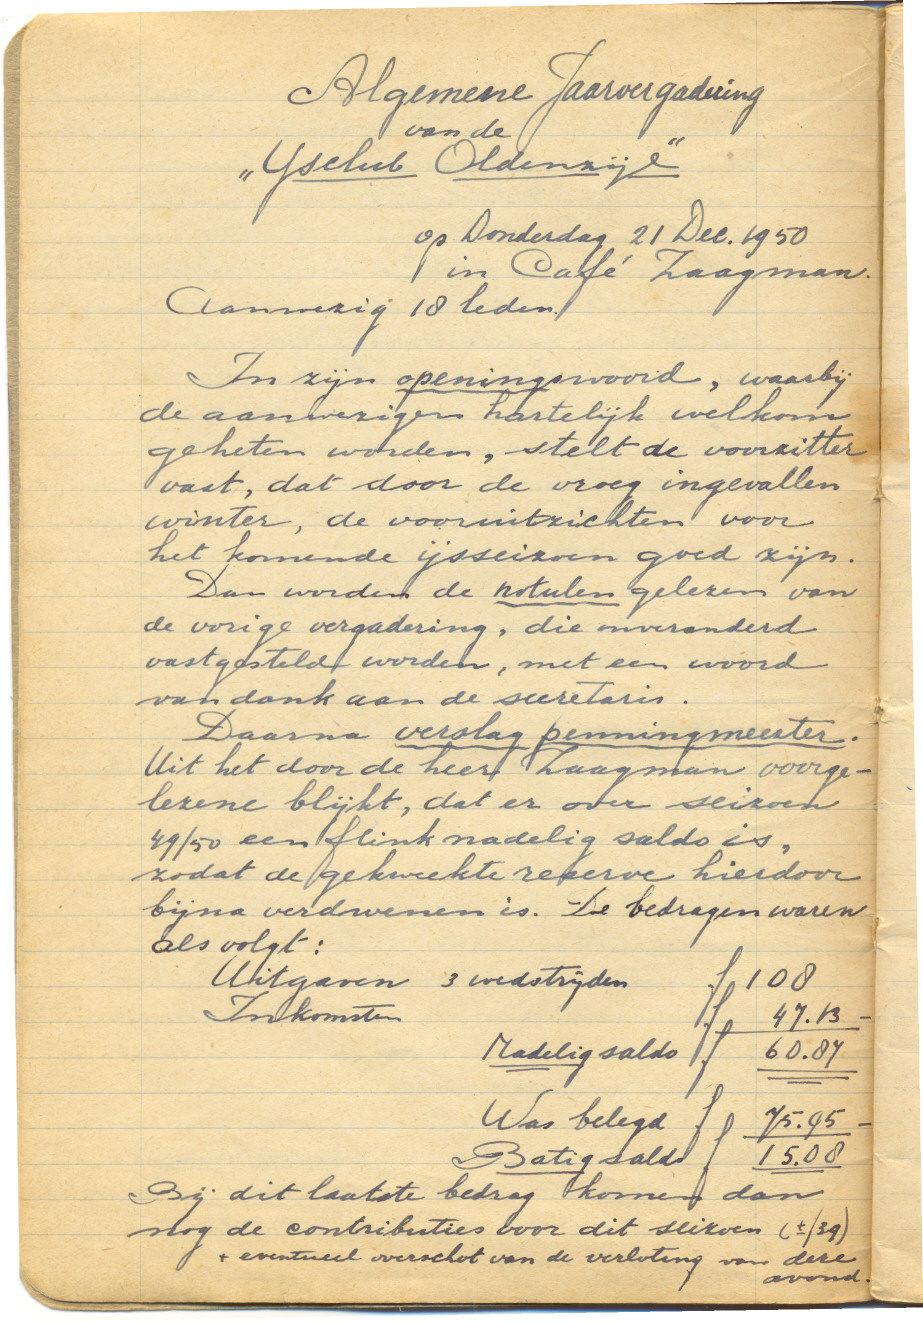 Algemene Jaarvergadering
van de
„IJsclub Oldenzijl"
op Donderdag 21 Dec. 1950
in Café Zaagman.
Aanwezig 18 leden.
In zijn openingswoord, waarbij
de aanwezigen hartelijk welkom
geheten worden, stelt de voorzitter
vast, dat door de vroeg ingevallen
winter, de vooruitzichten voor
het komende ijsseizoen goed zijn.
Dan worden de notulen gelezen van
de vorige vergadering, die onveranderd
vastgesteld worden, met een woord
van dank aan de secretaris.
Daarna verslag penningmeester.
Uit het door de heer Zaagman voorge-
lezene blijkt, dat er over seizoen
49/50 een flink nadelig saldo is,
zodat de gekweekte reserve hierdoor
bijna verdwenen is. De bedragen waren
als volgt:
Uitgaven 3 wedstrijden f 108
Inkomsten f 47.13 –
Nadelig saldo f 60.87
Was belegd f 75.95 –
Batig saldo f 15.08
Bij dit laatste bedrag komen dan
nog de contributies voor dit seizoen (± f39)
+ eventueel overschot van de verloting van deze
avond.